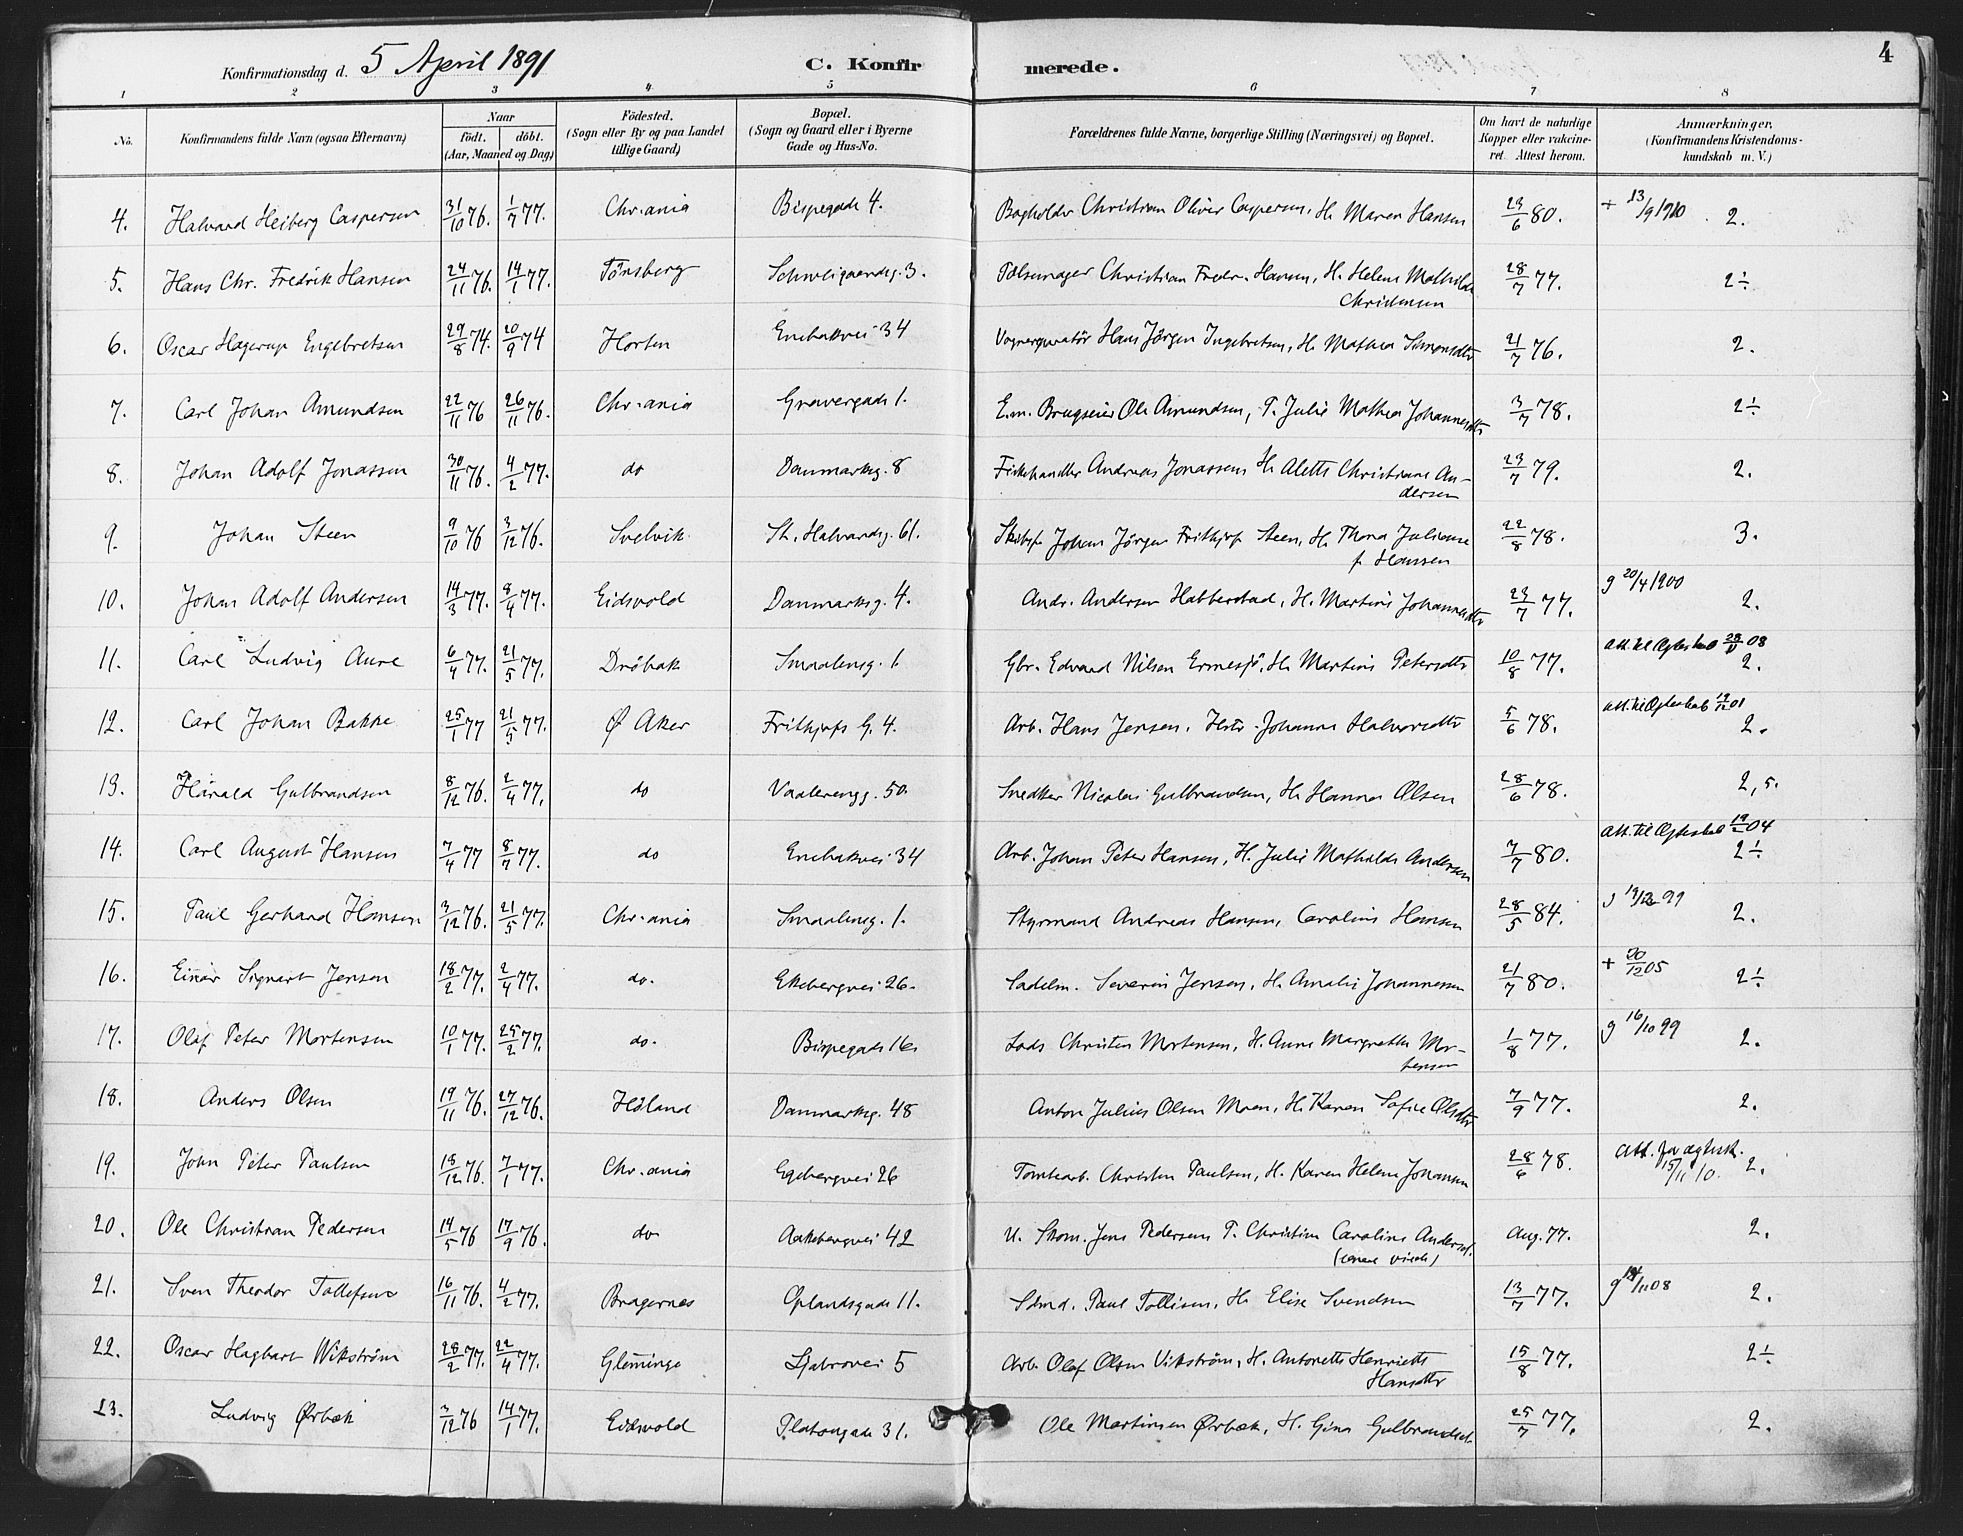 Konfirmationsdag d. 5 April 1891 C. Konfirmerede. 4
1 2 3 4 5 6 7 8
No. Konfirmandens fulde Navn (ogsaa Efternavn) Naar født. døbt. (Aar, Maaned og Dag) Fødested. (Sogn eller By og paa Landet tillige Gaard) Bopæl. (Sogn og Gaard eller i Byerne Gade og Hus-No. Forældrenes fulde Navne, borgerlige Stilling (Næringsvei) og Bopæl. Om havt de naturlige Kopper eller vakcineret. Attest herom. Anmærkninger, (Konfirmandens Kristendomskundskab m. V.)
4. Halvard Heiberg Caspersen 31/10 76. 1/7 77. Chr.ania Bispegade 4. Bogholder Christian Oliver Caspersen, H. Maren Hansen 23/6 80. + 13/9 1910 2.
5. Hans Chr. Fredrik Hansen 24/11 76. 14/1 77. Tønsberg Schweigaardsg. 3. Pølsemager Christian Fredr. Hansen, H. Helene Mathilde Christensen 28/7 77. 2÷
6. Oscar Hagerup Engebretsen 29/8 74. 20/9 74 Horten Enebakvei 34 Hans Jørgen Ingebretsen, H. Mathea Simonsdtr 21/7 76. 2.
7. Carl Johan Amundsen 22/11 76 26/11 76. Chr.ania Gravergade 1. E.m. Brugseier Ole Amundsen, P. Julie Mathea Johannesdtr 3/7 78. 2÷
8. Johan Adolf Jonassen 30/11 76. 4/2 77. do Danmarksg. 8 Fiskehandler Andreas Jonassen, H. Alette Christiane Andersen 23/7 79. 2.
9. Johan Steen 9/10 76 3/12 76. Svelvik St. Halvardsg. 61. Skibsf. Johan Jørgen Frithjof Steen, H. Thora Juliane f. Hansen 22/8 78. 3.
10. Johan Adolf Andersen 14/3 77. 8/4 77. Eidsvold Danmarksg. 4. Andr. Andersen Habberstad, H. Martine Johannesdtr 23/7 77. g 20/4 1900 2.
11. Carl Ludvig Aure 6/4 77. 21/5 77. Drøbak Smaalensg. 1. Gbr. Edvard Nilsen Ermesjø, H. Martine Petersdtr 10/8 77. att. til Ægteskab 08 2.
12. Carl Johan Bakke 25/1 77 21/5 77. Ø Aker Frithjofs G. 4. Arb. Hans Jensen, Hstr. Johanne Halvorsdtr 5/6 78. att. til Ægteskab 01 2.
13. Harald Gulbrandsen 8/12 76. 2/4 77. do Vaalerengg. 50. Snedker Nicolai Gulbrandsen, H. Hanna Olsen 28/6 78. 2,5.
14. Carl August Hansen 7/4 77 8/7 77. do Enebakvei 34 Arb. Johan Peter Hansen, H. Julie Mathilde Andersen 7/7 80. att. til Ægteskab 19/2 04 2÷
15. Paul Gerhard Hansen 3/12 76. 21/5 77. Chr.ania Smaalensg. 1. Styrmand Andreas Hansen, Caroline Hansen 28/5 84. 99 2.
16. Einar Sigvart Jensen 18/2 77. 2/4 77. do. Ekebergvei 26. Sadelm. Severin Jensen, H. Amalie Johannessen 21/7 80. + 20/12 05 2÷
17. Olaf Peter Mortensen 10/1 77. 25/2 77. do. Bispegade 16 Lods Christen Mortensen, H. Anne Margrethe Mortensen 1/8 77. g 16/10 99 2.
18. Anders Olsen 19/11 76. 27/12 76. Høland Danmarksg. 48 Anton Julius Olsen Moen, H. Karen Sofie Olsdtr 7/9 77. 2.
19. John Peter Paulsen 18/12 76. 7/1 77. Chr.ania Egebergvei 26 Tomtearb. Christen Paulsen, H. Karen Helene Johansen 28/6 78. Att. for ægtesk. 15/11 10. 2.
20. Ole Christian Pedersen 14/5 76 17/9 76. do Aakebergvei 42 U. Skom. Jens Pedersen P. Christine Caroline Andersd. 
Aug. 77. 2.
21. Sven Theodor Tollefsen 16/11 76. 4/2 77. Bragernes Oplandsgade 11. Sdmd. Paul Tollisen, H. Elise Svendsen 13/7 77. g 14/11 08 2.
22. Oscar Hagbart Wikstrøm 28/2 77. 22/4 77. Gleminge Ljabrovei 5 Arb. Olaf Olsen Vikstrøm, H. Antonette Henriette Hansdtr 15/8 77. 2÷
23. Ludvig Ørbæk 3/12 76 14/1 77. Eidsvold Platousgade 31. Ole Martinsen Ørbæk, H. Gina Gulbrandsd. 25/7 77. 2.